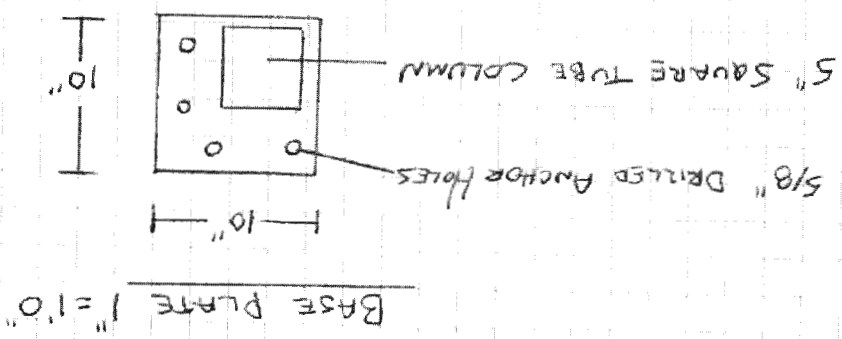 BASE PLATE 1"=1'0"
10"
5/8" DRILLED ANCHOR HOLES
5" SQUARE TUBE COLUMN
10"